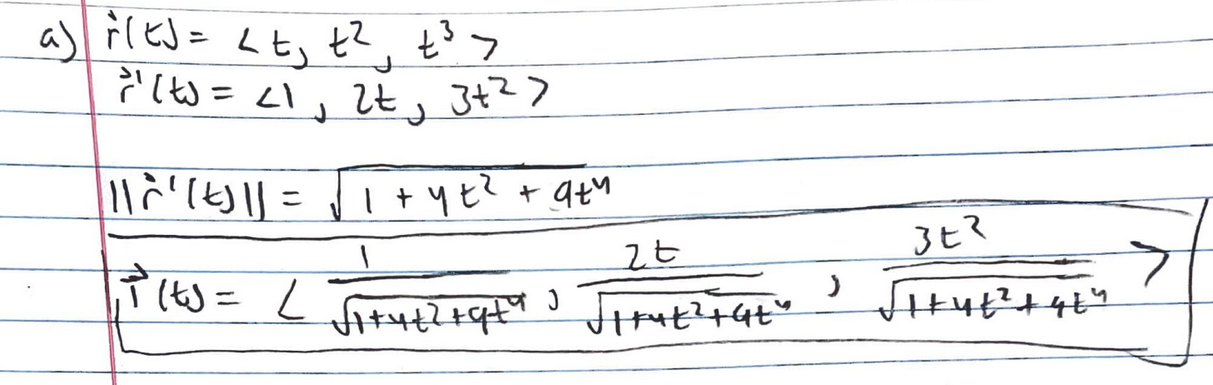 a) r⃗(t) = <t, t², t³>
r⃗'(t) = <1, 2t, 3t²>
||r⃗'(t)|| = √(1 + 4t² + 9t⁴)
T⃗(t) = < 1/√(1+4t²+9t⁴), 2t/√(1+4t²+9t⁴), 3t²/√(1+4t²+9t⁴) >